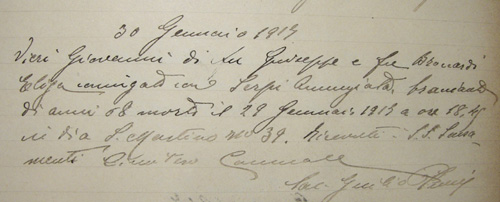 30 Gennaio 1913
Vieri Giovanni di fu Giuseppe e fu Bernardi
coniugato con Serpi Annunziata
di anni 68 morto il 29 Gennaio 1913 a ore 18.45
in Via S. Martino no 39. Ricevuti i S.S. Sacra-
menti. Cimitero Comunale
Sac. Giulio